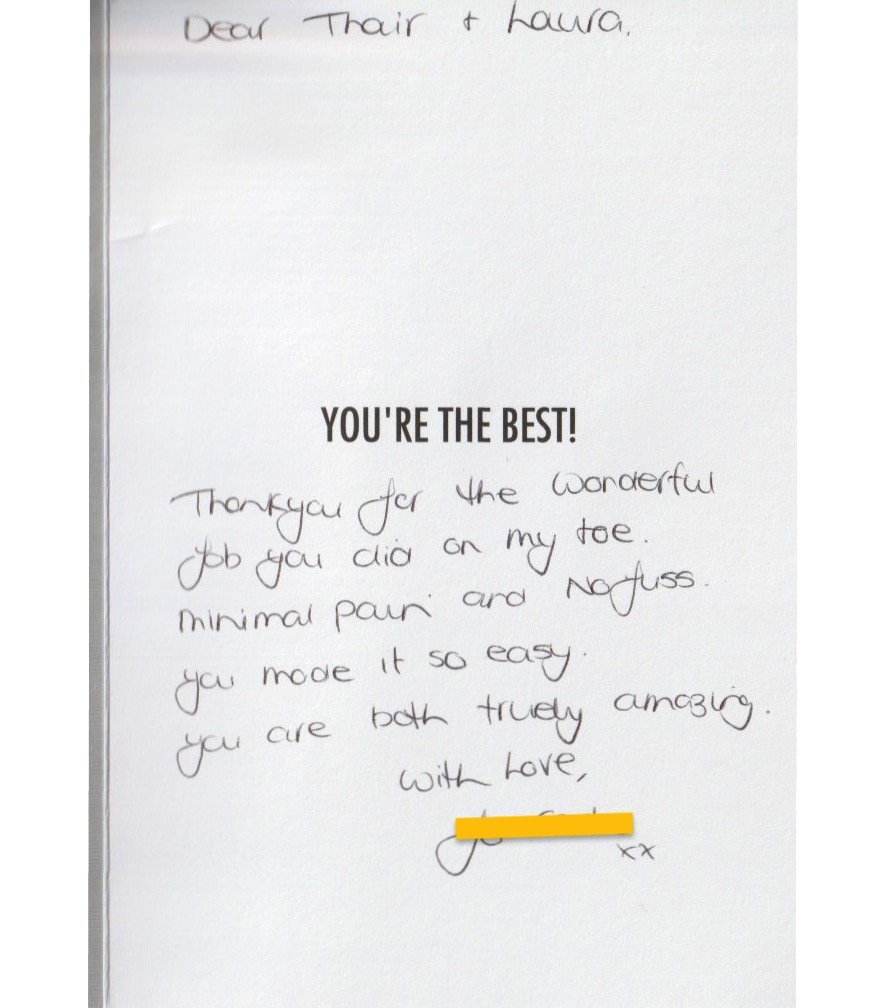 Dear Thair + Laura.
YOU'RE THE BEST!
Thankyou for the wonderful
job you did on my toe.
minimal pain and No fuss.
you made it so easy.
you are both truely amazing.
With Love,
xx